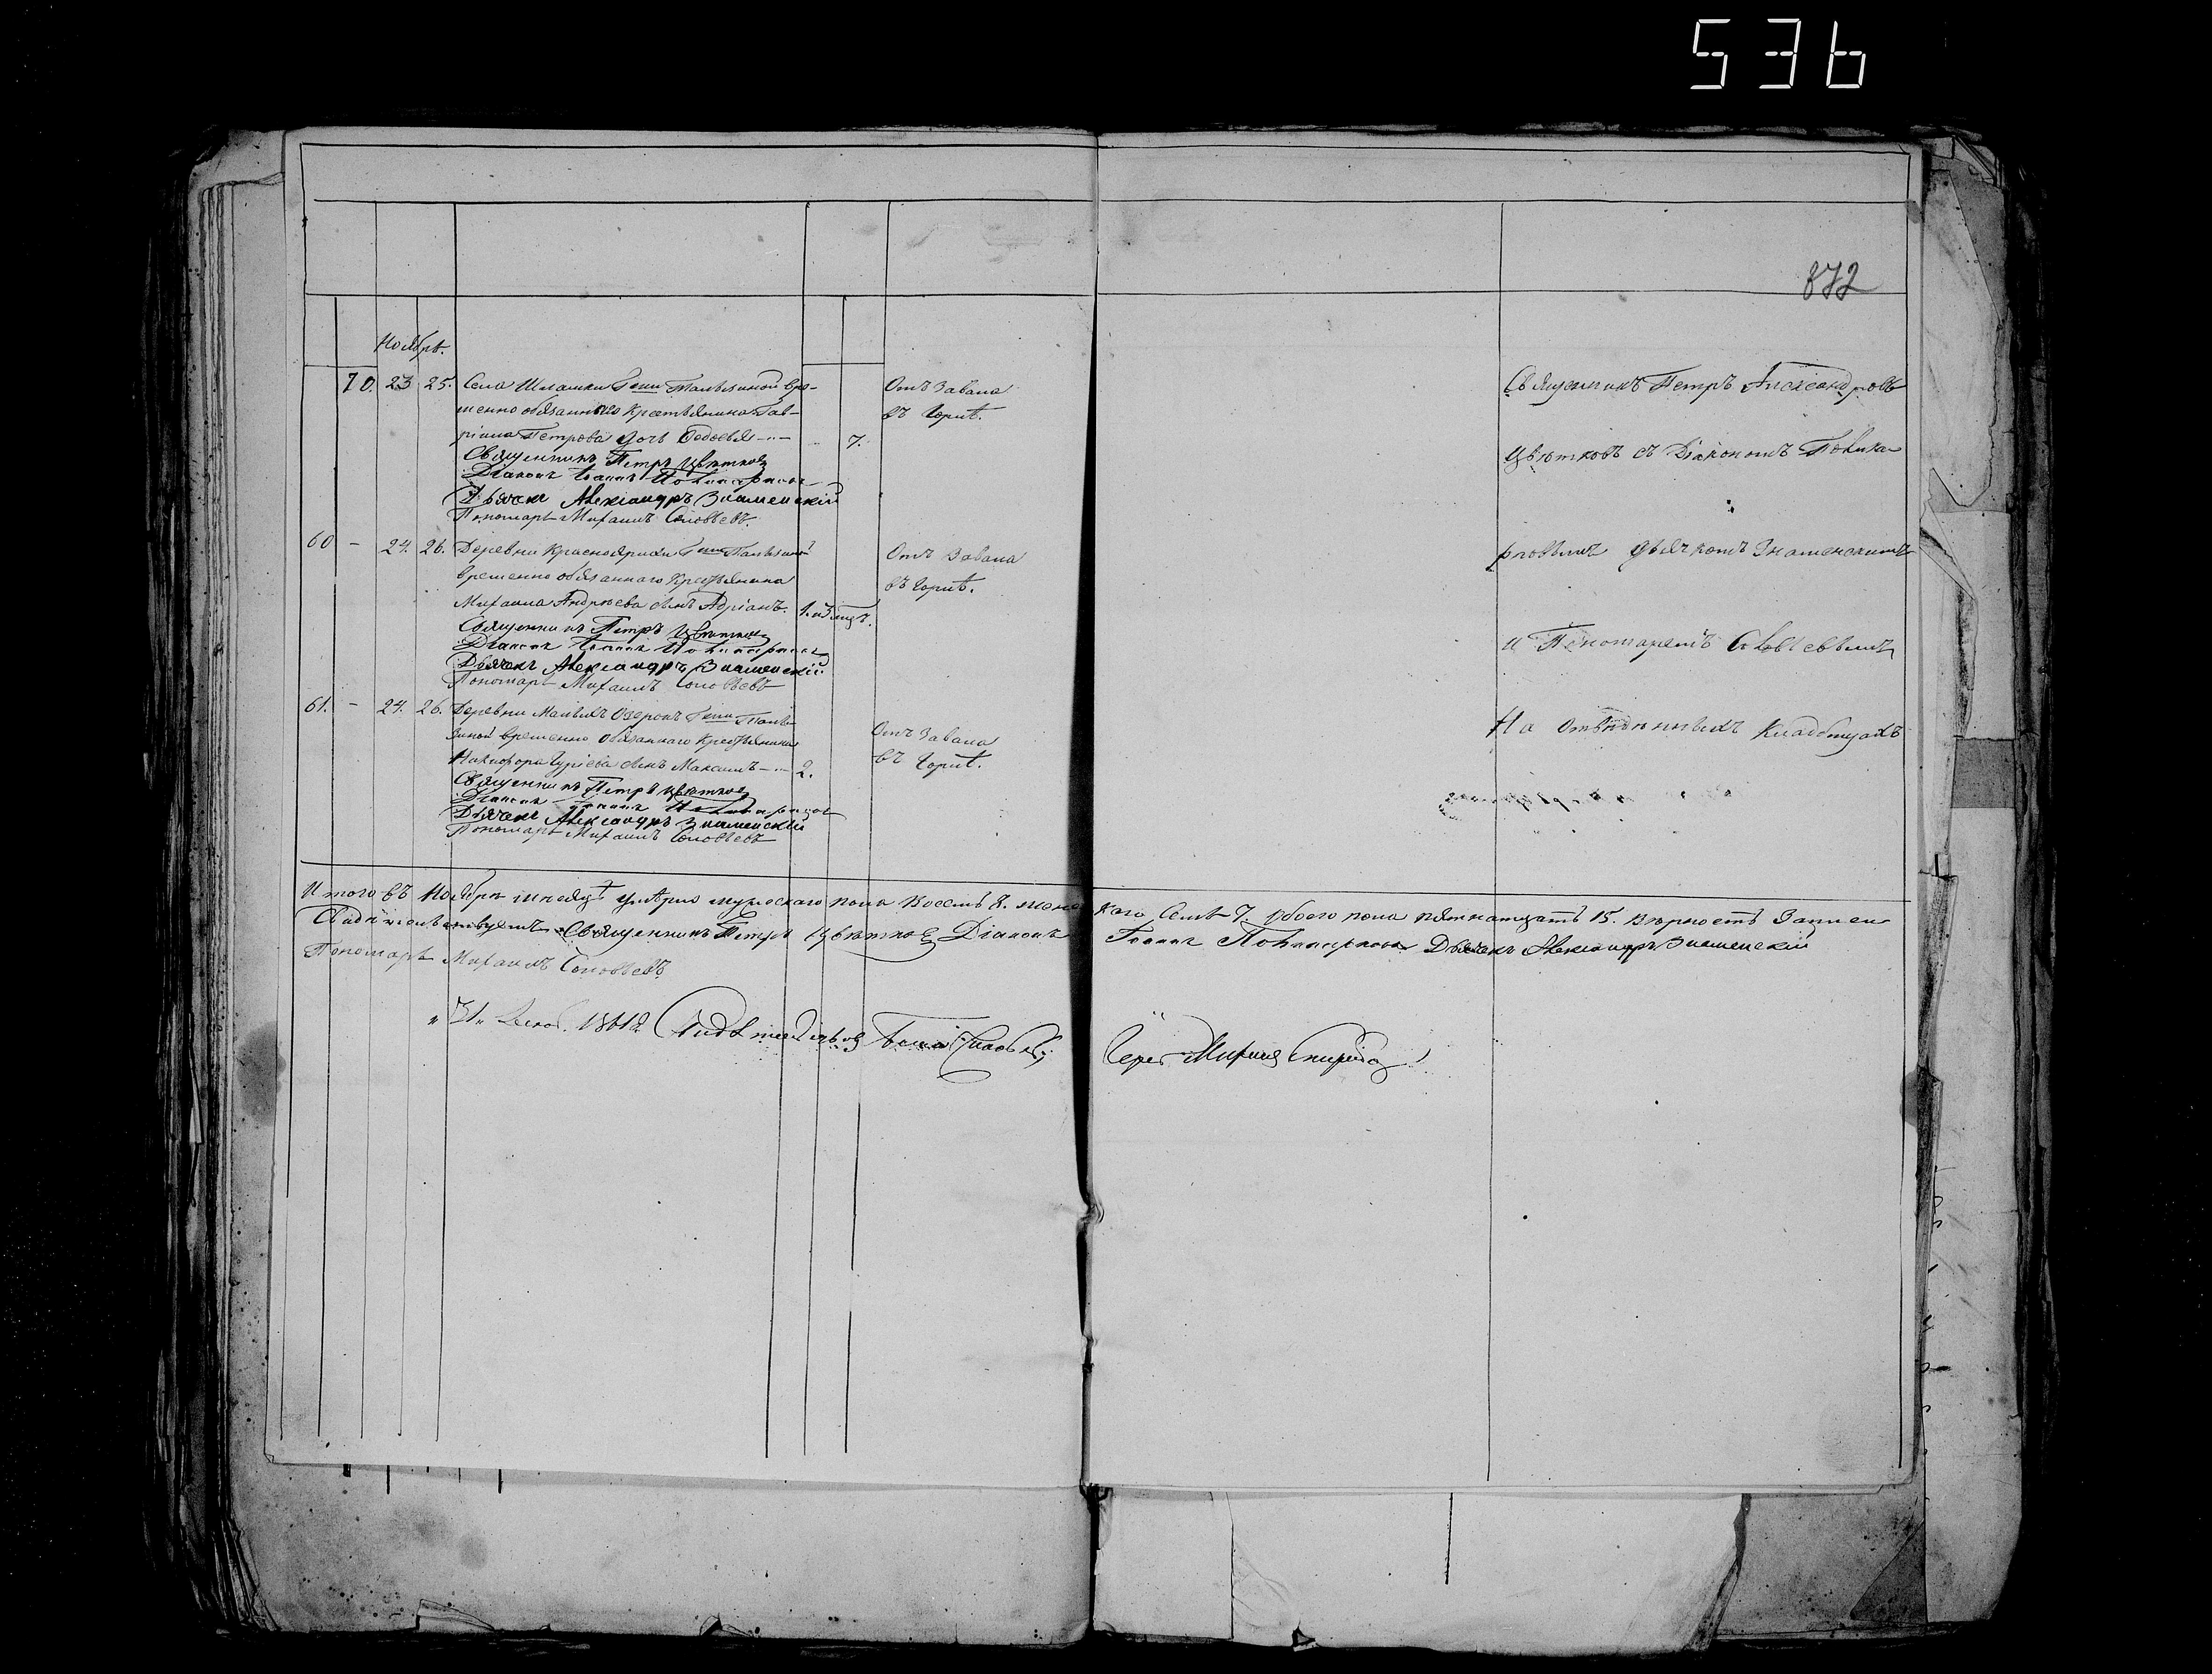 536
872
Ноябрь.
70. 23 25. Села Шламки Г-жи Тальзиной вре-
менно обязаннаго крестьянина Гав-
ріила Петрова дочь Ѳедосья
7.
Отъ завала
въ горлѣ.
Священникъ Петръ Цвѣтковъ
Діаконъ Іоаннъ Поликарповъ
Дьячекъ Александръ Знаменскій
Пономарь Михаилъ Соловьевъ.
60 - 24. 26. Деревни Красноярихи Г-жи Тальзиной
временно обязаннаго крестьянина
Михаила Андрѣева сынъ Адріанъ. 1. мѣсяц.
Отъ завала
въ горлѣ.
Священникъ Петръ Цвѣтковъ
Діаконъ Іоаннъ Поликарповъ
Дьячекъ Александръ Знаменскій
Пономарь Михаилъ Соловьевъ
61. - 24. 26. Деревни Малыхъ Озерокъ Г-жи Таль-
зиной временно обязаннаго крестьянина
Никифора Гурьева сынъ Максимъ 2.
Отъ завала
въ горлѣ.
Священникъ Петръ Цвѣтковъ
Діаконъ Іоаннъ Поликарповъ
Дьячекъ Александръ Знаменскій
Пономарь Михаилъ Соловьевъ
Священникъ Петръ Александровъ
Цвѣтковъ съ Діакономъ Полика-
рповымъ дьячкомъ Знаменскимъ
и Пономаремъ Соловьевымъ
На отведенныхъ кладбищахъ
Итого въ Ноябрѣ мѣсяцѣ умерло мужескаго пола восемь 8. женс
каго семь 7. обоего пола пятнатцать 15. вѣрность записи
Свидѣтельствуемъ Священникъ Петръ Цвѣтковъ Діаконъ
Іоаннъ Поликарповъ Дьячекъ Александръ Знаменскій
Пономарь Михаилъ Соловьевъ
31 Декаб. 1861 Свидѣтельств.